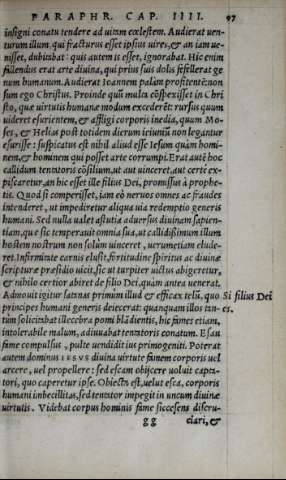 PARAPHR. CAP. IIII. 97
insigni conatu tendere ad uitam cœlestem. Audierat uen-
turum illum, qui fracturus esset ipsius uires, & an iam ue-
nisset, dubitabat: quis autem is esset, ignorabat. Hic enim
fallendus erat arte diuina, qui prius suis dolis fefellerat ge
nus humanum. Audierat Ioannem palàm profitentē: non
sum ego Christus. Proinde quũ multa cōspexisset in Chri
sto, quæ uirtutis humanæ modum excederēt: rursus quum
uideret esurientem, & affligi corporis inedia, quum Mo-
ses, & Helias post totidem dierum ieiuniũ non legantur
esurisse: suspicatus est nihil aliud esse Iesum quàm homi-
nem, & hominem qui posset arte corrumpi. Erat autē hoc
callidum tentatoris cōsilium, ut aut uinceret, aut certè ex-
pisçaretur, an hic esset ille filius Dei, promissus à prophe-
tis. Quod si comperisset, iam eò neruos omnes ac fraudes
intenderet, ut impediretur aliqua uia redemptio generis
humani. Sed nulla ualet astutia aduersus diuinam sapien-
tiam, quæ sic temperauit omnia sua, ut callidissimum illum
hostem nostrum non solùm uinceret, uerumetiam elude-
ret. Infirmitate carnis elusit, fortitudine spiritus ac diuinæ
scripturæ præsidio uicit, sic ut turpiter uictus abigeretur,
& nihilo certior abiret de filio Dei, quàm antea uenerat.
Admouit igitur satanas primũm illud & efficax telũ, quo Si filius Dei
princeps humani generis deiecerat: quanquam illos tan- es.
tũm solicitabat illecebra pomi blādientis, hîc fames etiam,
intolerabile malum, adiuuabat tentatoris conatum. Esau
fame compulsus, pulte uendidit ius primogeniti. Poterat
autem dominus IESVS diuina uirtute famem corporis uel
arcere, uel propellere: sed escam obijcere uoluit capta-
tori, quo caperetur ipse. Obiecta est, uelut esca, corporis
humani imbecillitas, sed tentator impegit in uncum diuinæ
uirtutis. Videbat corpus hominis fame siccescens discru-
gg ciari, &